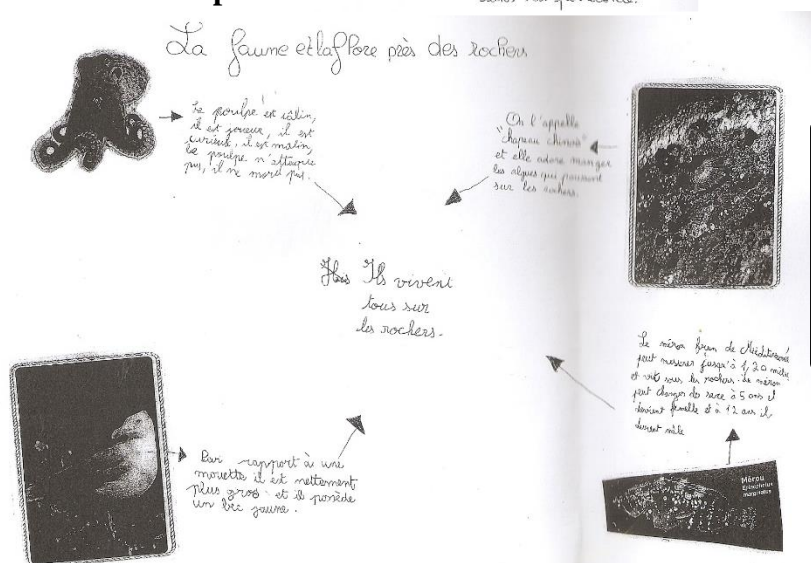 La faune et la flore près des rochers
Le poulpe est câlin,
il est joueur, il est
curieux, il est malin,
le poulpe n'attaque
pas, il ne mord pas.
On l'appelle
"chapeau chinois"
et elle adore manger
les algues qui poussent
sur les rochers.
Ils vivent
tous sur
les rochers.
Le mérou brun de Méditerranée
peut mesurer jusqu'à 1,20 mètre
et vit sous les rochers. Le mérou
peut changer de sexe à 5 ans il
devient femelle et à 12 ans il
devient mâle
Par rapport à une
mouette il est nettement
plus gros et il possède
un bec jaune.
Mérou
Epinephelus
marginatus